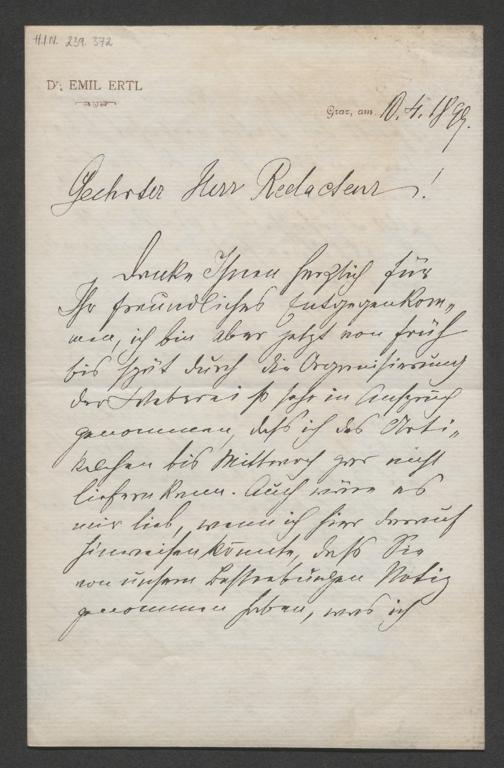 H.I.N. 239.372
Dr. EMIL ERTL
Graz, am 10.4.1899.
Geehrter Herr Redacteur!
Danke Ihnen herzlich für
Ihr freundliches Entgegenkom-
men, ich bin aber jetzt von früh
bis spät durch die Organisierung
der Weberei so sehr in Anspruch
genommen, daß ich das Arti-
kelchen bis Mittwoch gar nicht
liefern kann. Auch wäre es
mir lieb, wenn ich hier darauf
hinweisen könnte, daß Sie
von unsern Bestrebungen Notiz
genommen haben, was ich